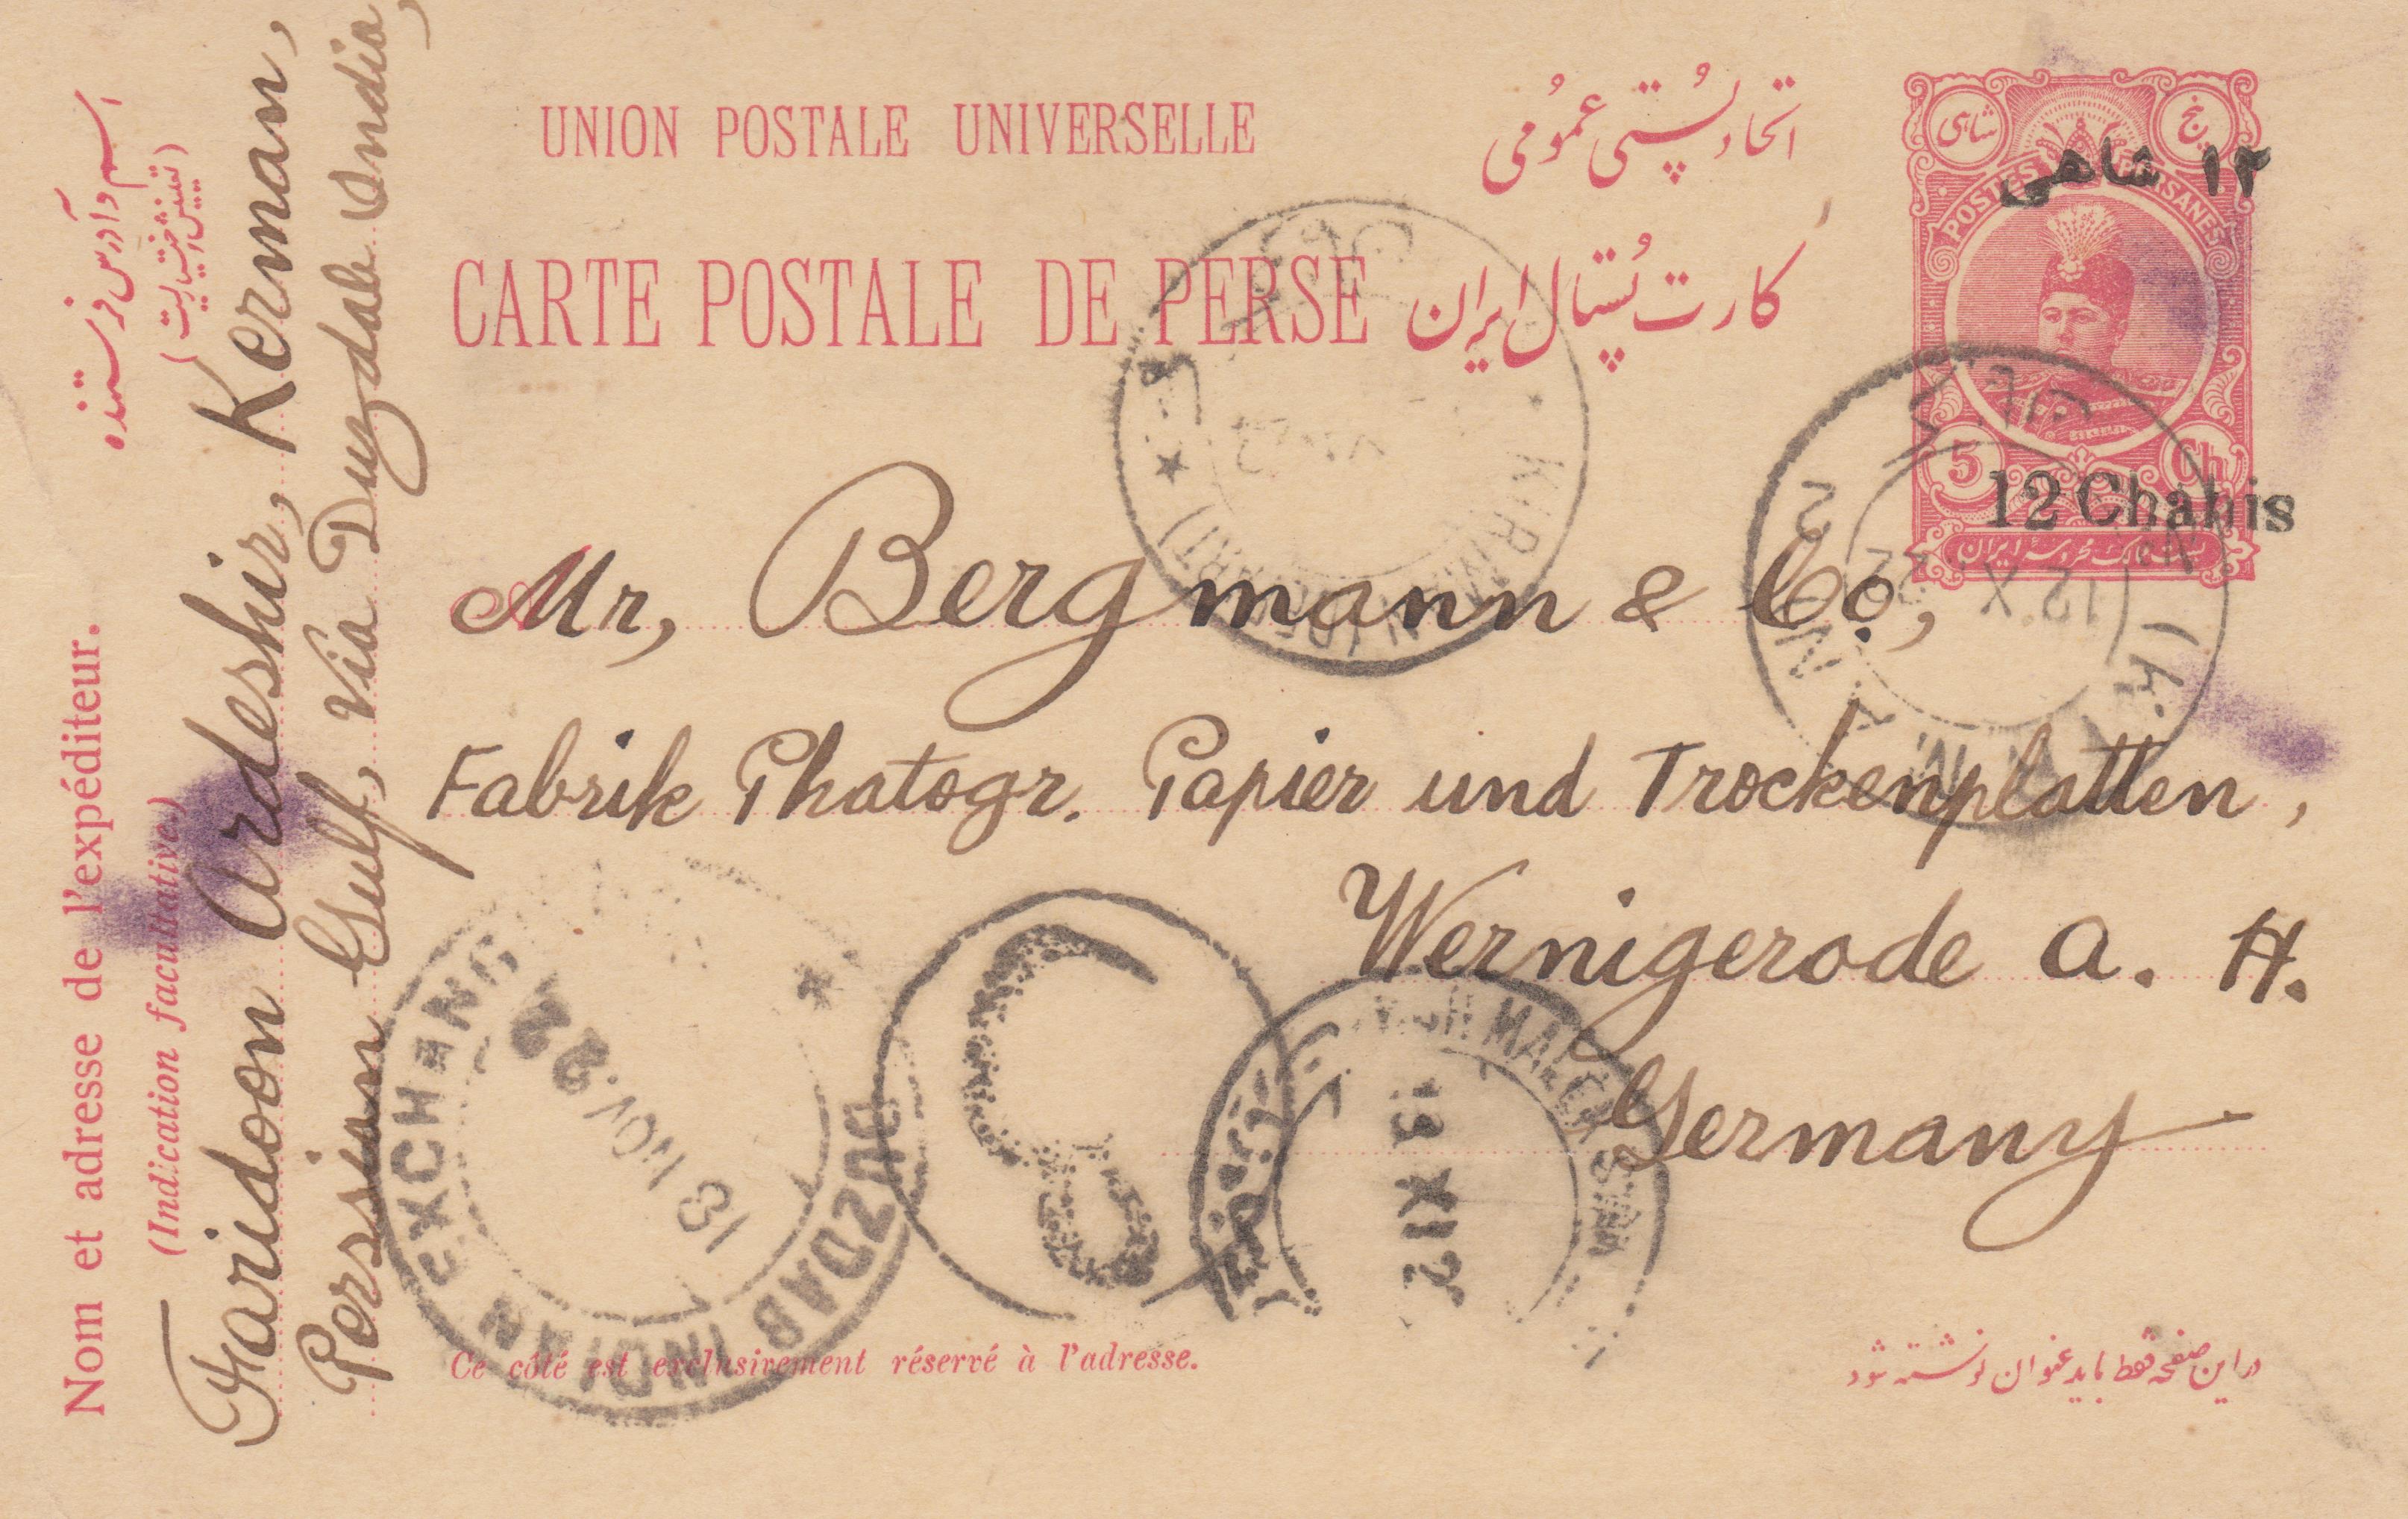 UNION POSTALE UNIVERSELLE
اتحاد پستی عمومی
CARTE POSTALE DE PERSE
کارت پستال ایران
پنج شاهی
POSTES PERSANES
۱۲ شاهی
5 Ch
12 Chahis
Mr, Bergmann & Co,
Fabrik Photogr. Papier und Trockenplatten,
Wernigerode a. H.
Germany
Ce côté est exclusivement réservé à l'adresse.
در این صفحه فقط باید عنوان نوشته شود
Nom et adresse de l'expéditeur.
(Indication facultative.)
اسم و آدرس فرستنده
Faridoon Ardeshir, Kerman,
Persian Gulf, Via Duzdab India,
KIRMAN
12 X 22
DUZDAB INDIAN EXCHANG
18 NOV. 22
19 XI 2